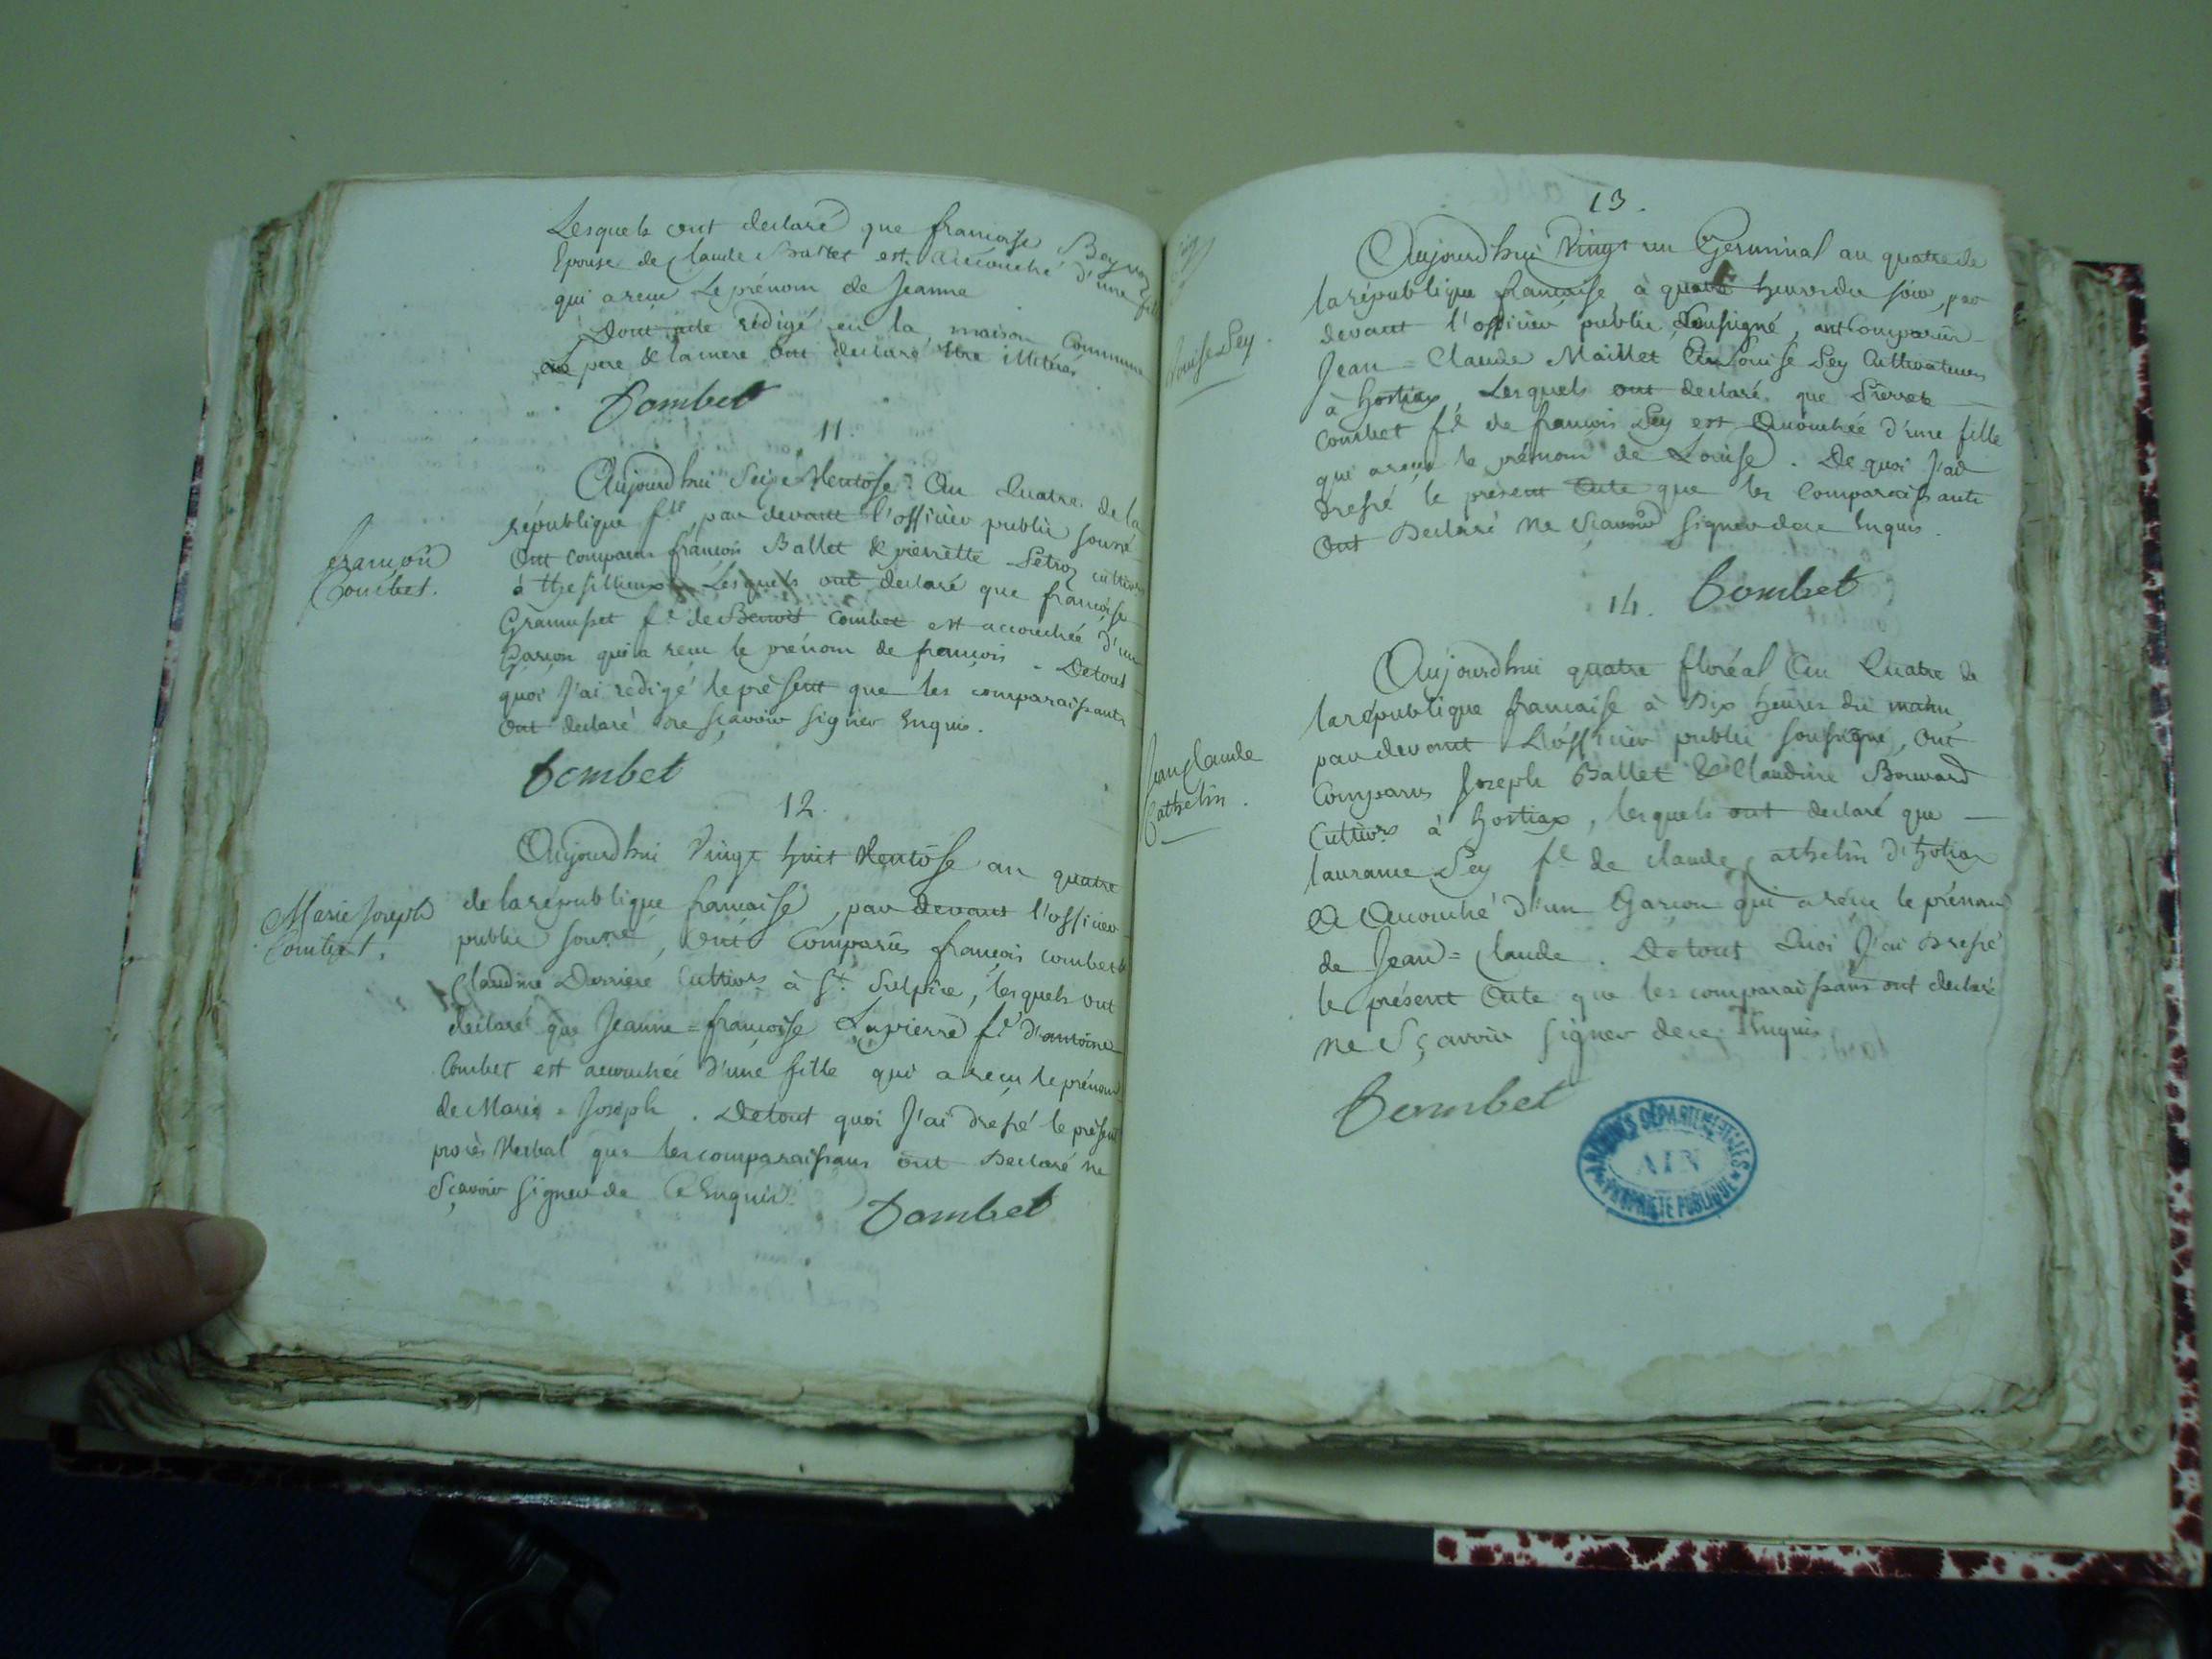 Lesquels ont declaré que francoise Beyroz
Epouse de Claude Ballet est accouché d'une fille
qui a recu Le prénom de Jeanne
Dont acte rédigé en la maison Commune
pere & la mere ont declaré être illitérés
Combet
11.
françois
Combet.
Aujourd'hui Seize Ventôse An Quatre de la
république f.se, par devant l'officier public sousné
Ont comparus françois Ballet & pierrette cultivrs
à Lesquels ont declaré que françoise
Gramusset f.e de Benoit Combet est accouchée d'un
Garçon qui a recu le prénom de françois. De tous
quoi J'ai redigé le présent que les comparaissants
Ont declaré ne sçavoir signer Enquis.
Combet
12.
Marie Joseph
Combet.
Aujourd'hui Vingt huit Ventôse an quatre
de la république francaise, par devant l'officier
public sousné, Ont Comparus françois combet &
Claudine Derriere Cultivrs à St. Sulpice, lesquels ont
declaré que Jeanne=françoise Lapierre f.e d'antoine
Combet est accouchée d'une fille qui a recu le prénom
de Marie=Joseph. De tout quoi J'ai dressé le présent
procès Verbal que les comparaissans ont Declaré ne
Sçavoir signer de Ce Enquis.
Combet
13.
Louise Ley.
Aujourd'hui Vingt un Germinal an quatre de
la république francaise à quatre heures du soir, par
devant l'officier public Sousigné, ont Comparus
Jean=Claude Maillet & Louise Ley Cultivateurs
à hostiax, Lesquels ont declaré que Pierrete
Combet f.e de francois Ley est Accouchée d'une fille
qui a reçu le prénom de Louise. De quoi J'ai
Dressé le présent Acte que les Comparaissants
Ont Declaré Ne Sçavoir signer de ce Enquis.
Combet
14.
Jean Claude
Cathelin.
Aujourd'hui quatre floréal An Quatre de
la république francaise à Dix heures du matin,
par devant L'officier public sousigné, Ont
Comparus Joseph Ballet & Claudine Bouvard
Cultivrs à hostiax, lesquels ont declaré que
laurance Ley f.e de Claude Cathelin d'hotiax
A Accouché d'un Garçon qui a recu le prénom
de Jean=Claude. De tout Quoi J'ai Dressé
le présent Acte que les comparaissans ont declaré
ne Sçavoir signer de ce Enquis
Combet
ARCHIVES DÉPARTEMENTALES
AIN
PROPRIÉTÉ PUBLIQUE